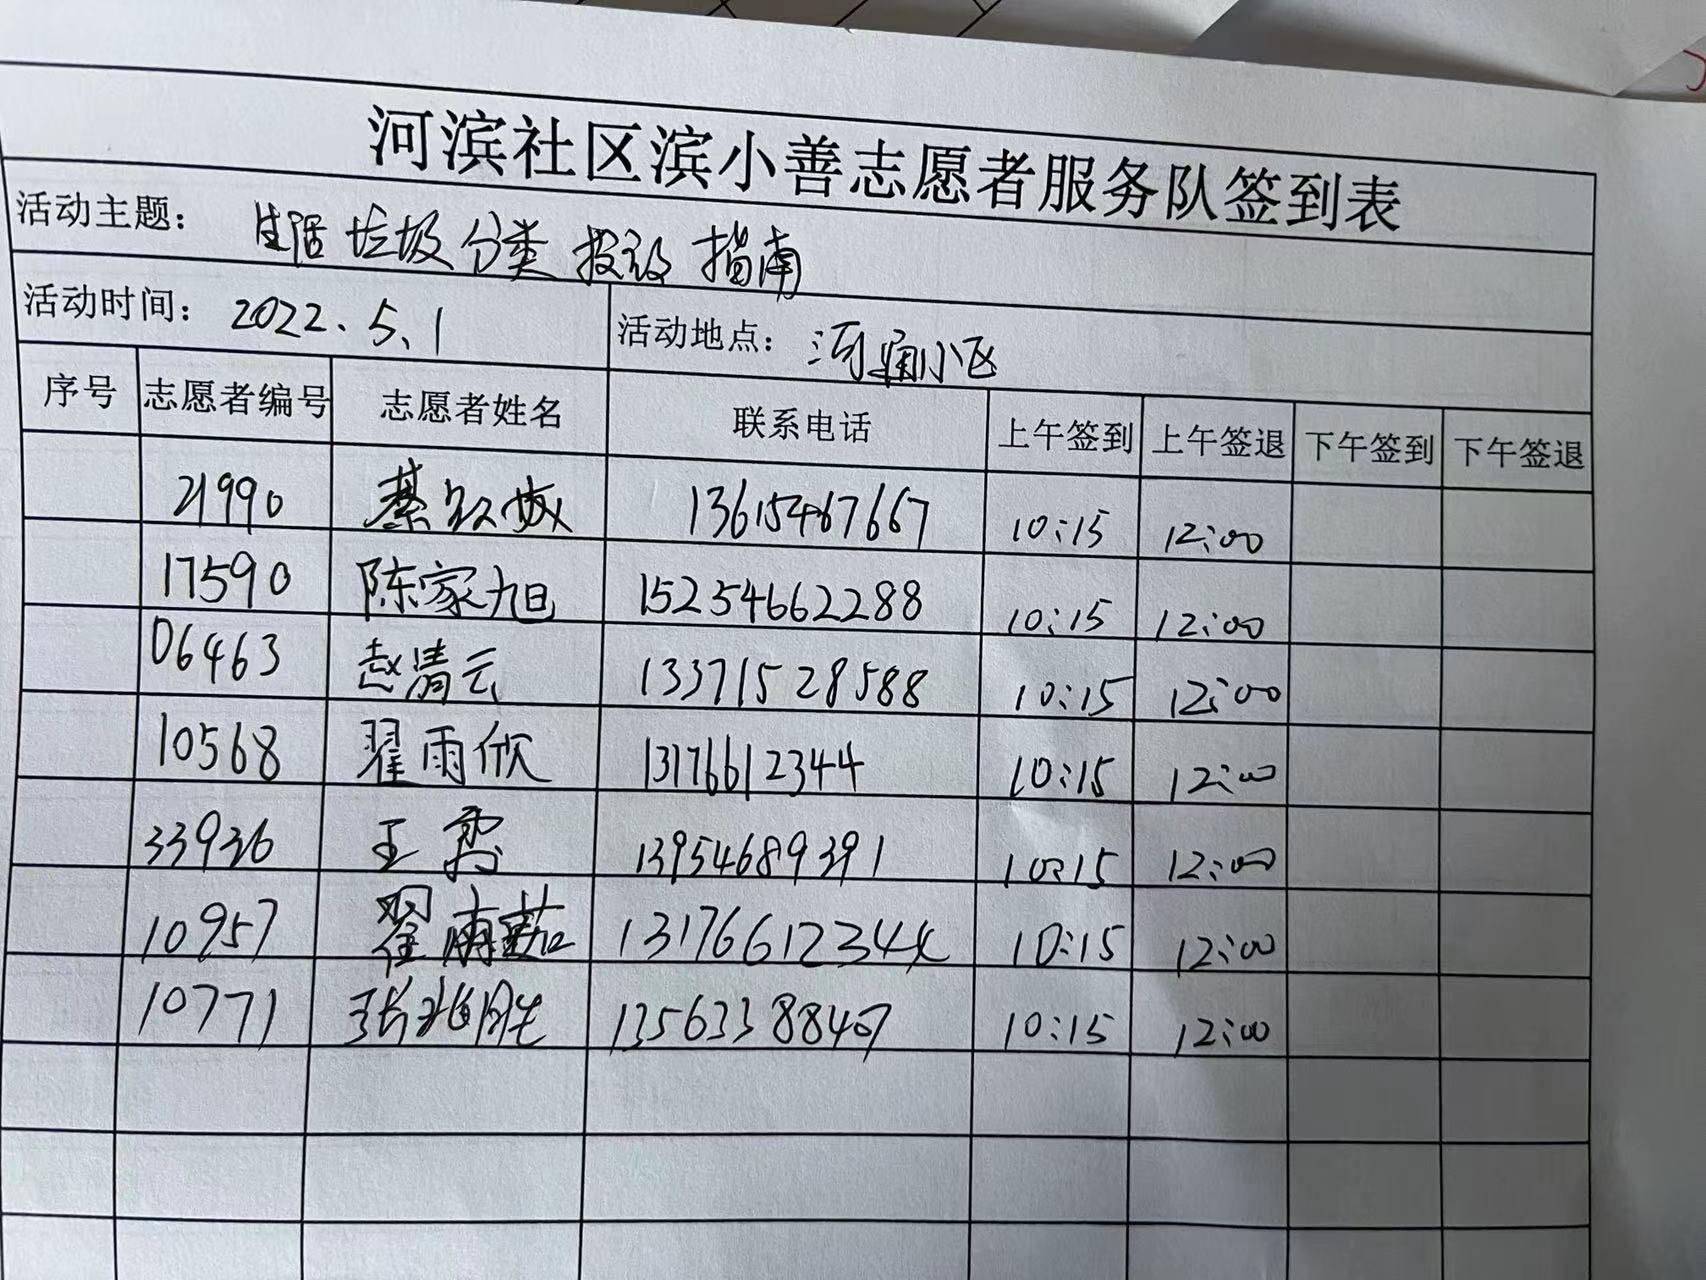 河滨社区滨小善志愿者服务队签到表
活动主题： 生活垃圾分类投放指南
活动时间： 2022.5.1 活动地点： 河通小区
序号 志愿者编号 志愿者姓名 联系电话 上午签到 上午签退 下午签到 下午签退
21990 13615467667 10:15 12:00
17590 陈家旭 15254662288 10:15 12:00
06463 赵清云 13371528588 10:15 12:00
10568 翟雨欣 13176612344 10:15 12:00
33936 王 10:15 12:00 13954689391
10957 翟雨茹 13176612344 10:15 12:00
10771 张兆胜 13563388407 10:15 12:00